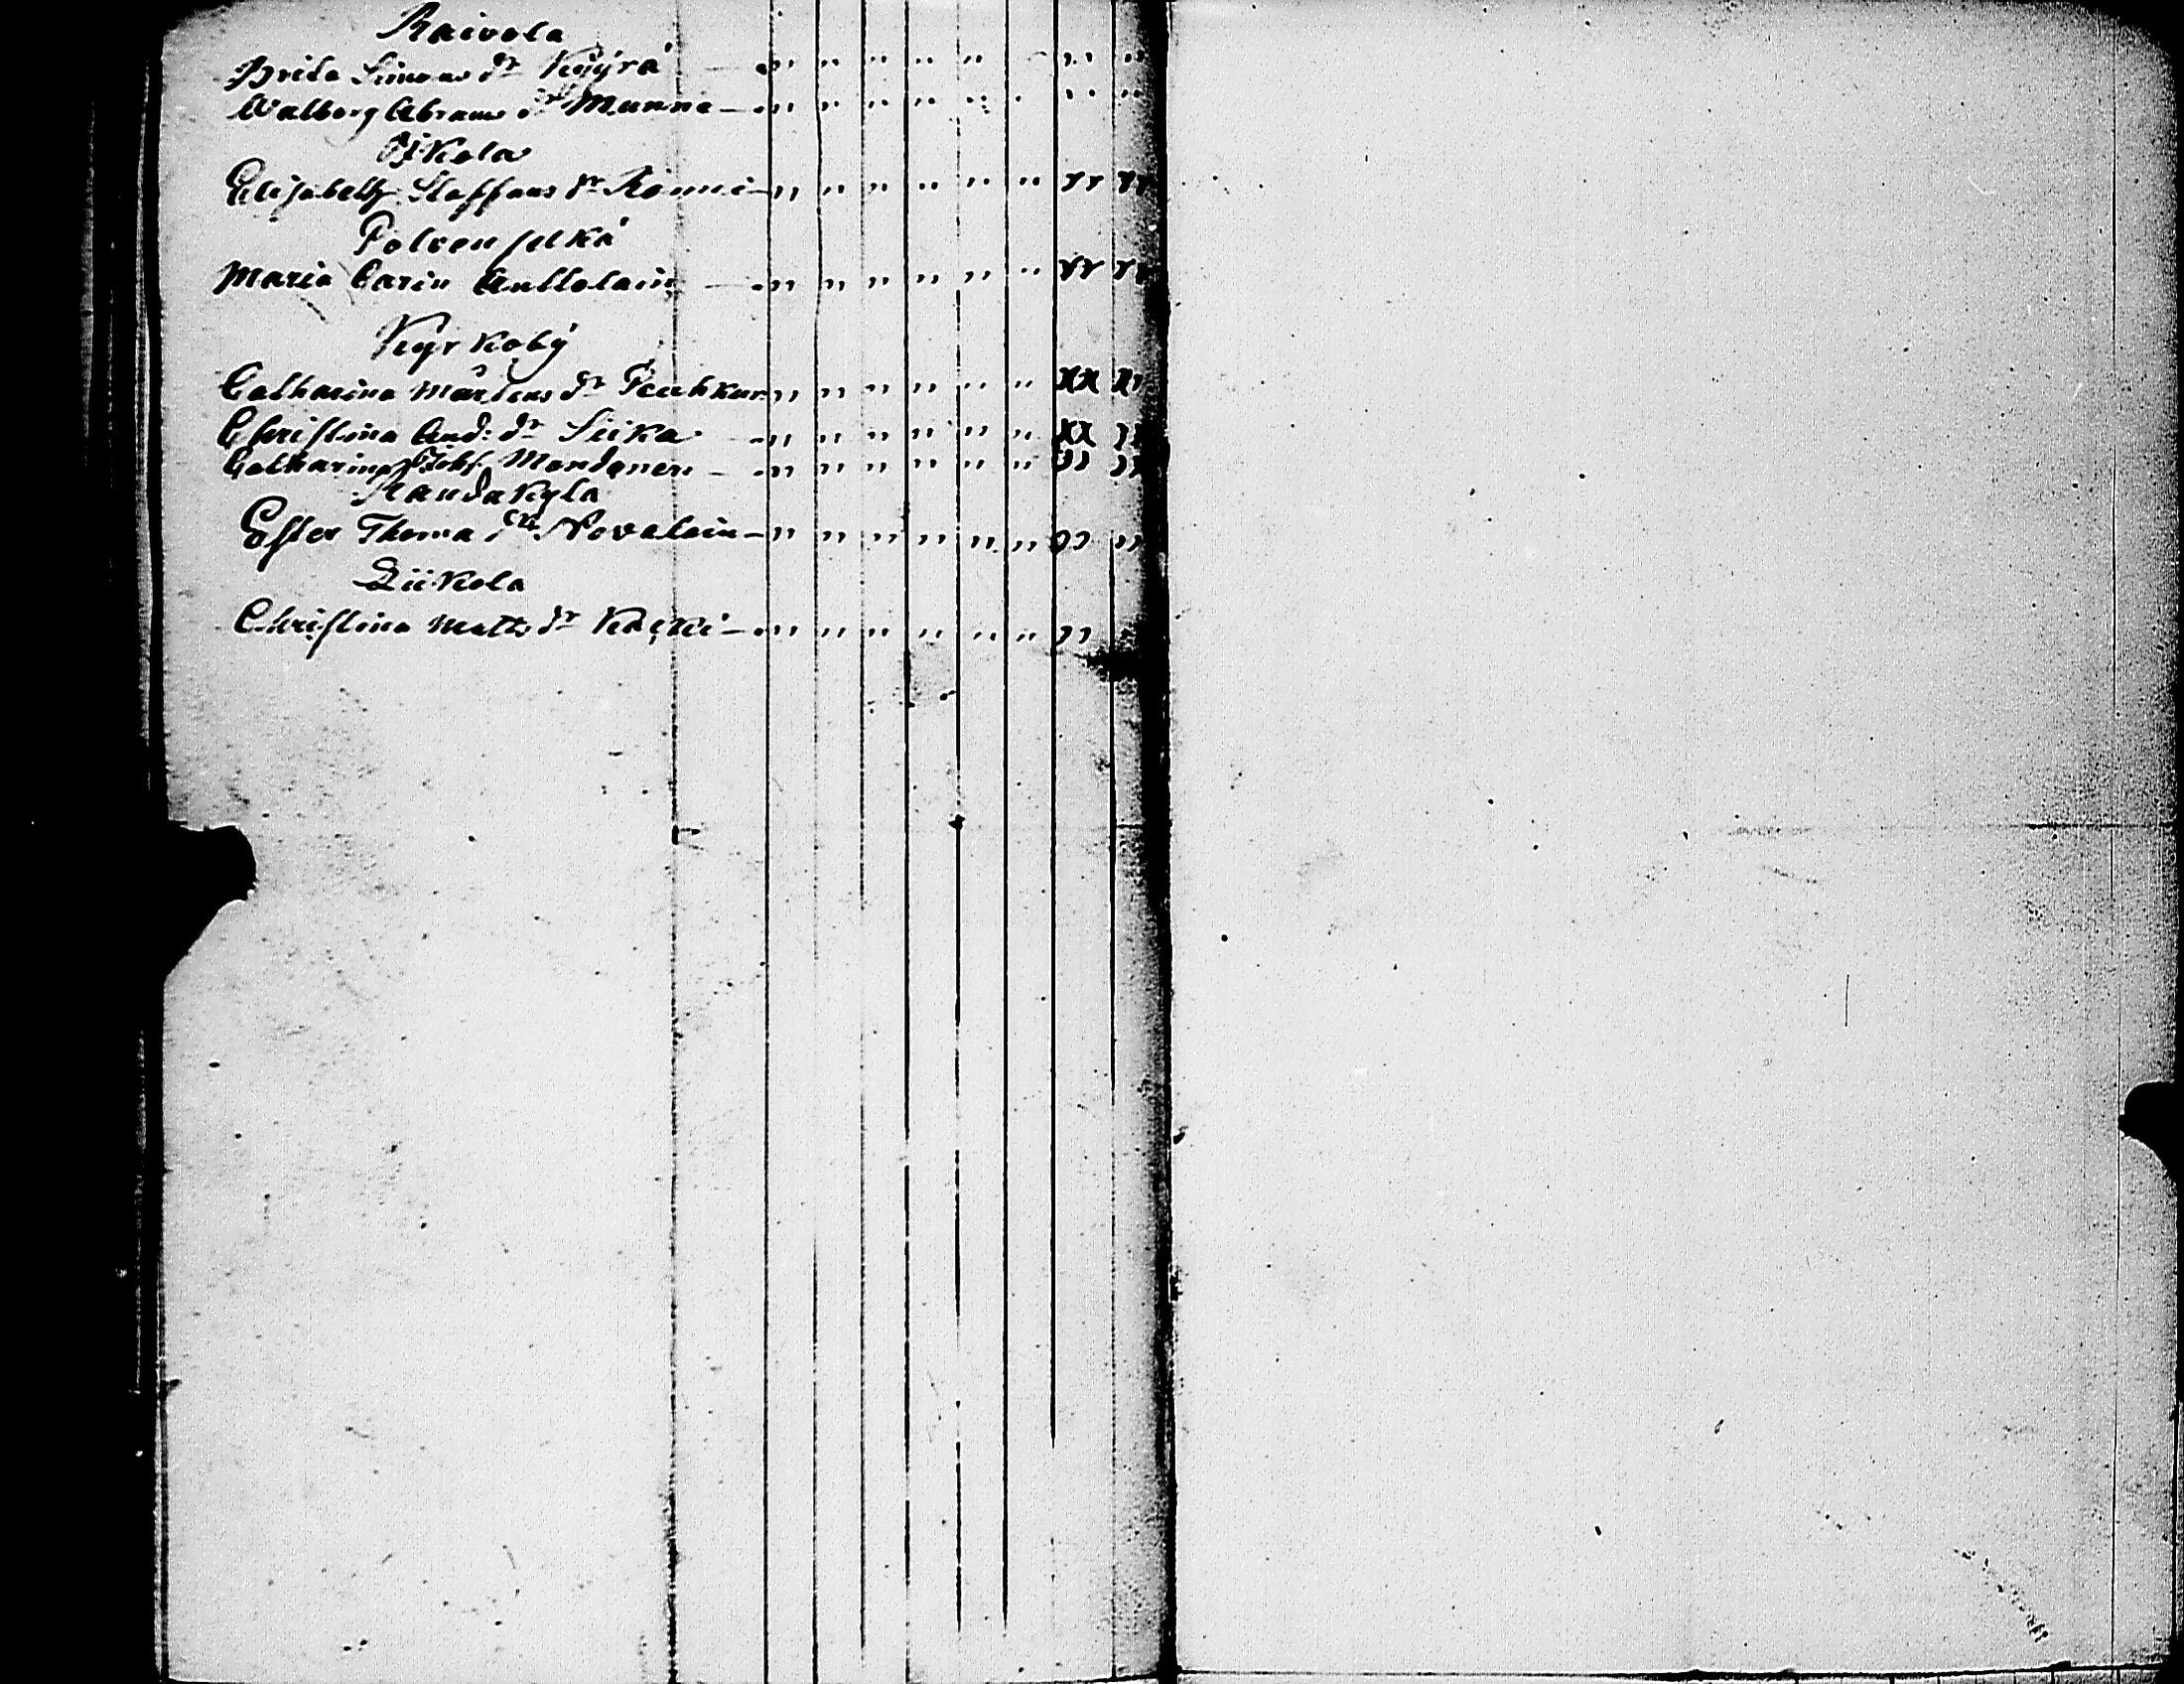 Raivola
Brita Simons dr Kÿÿrä — " " " " " " "
Walborg Abrams dr Munne — " " " " " " "
Elisabeth Staffans dr Rönni — " " " " " " " "
Polven selkä
Maria Carin Anttolain — " " " " " " " "
Kyrkobÿ
Catharina Mårtens dr " " " " " "
Christina And: dr Siika — " " " " " "
Catharina Mondonen — " " " " " " " "
Kandakyla
Ester Thoma dr Novolain — " " " " " " " "
Liikola
Christina Matts dr — " " " " " " "